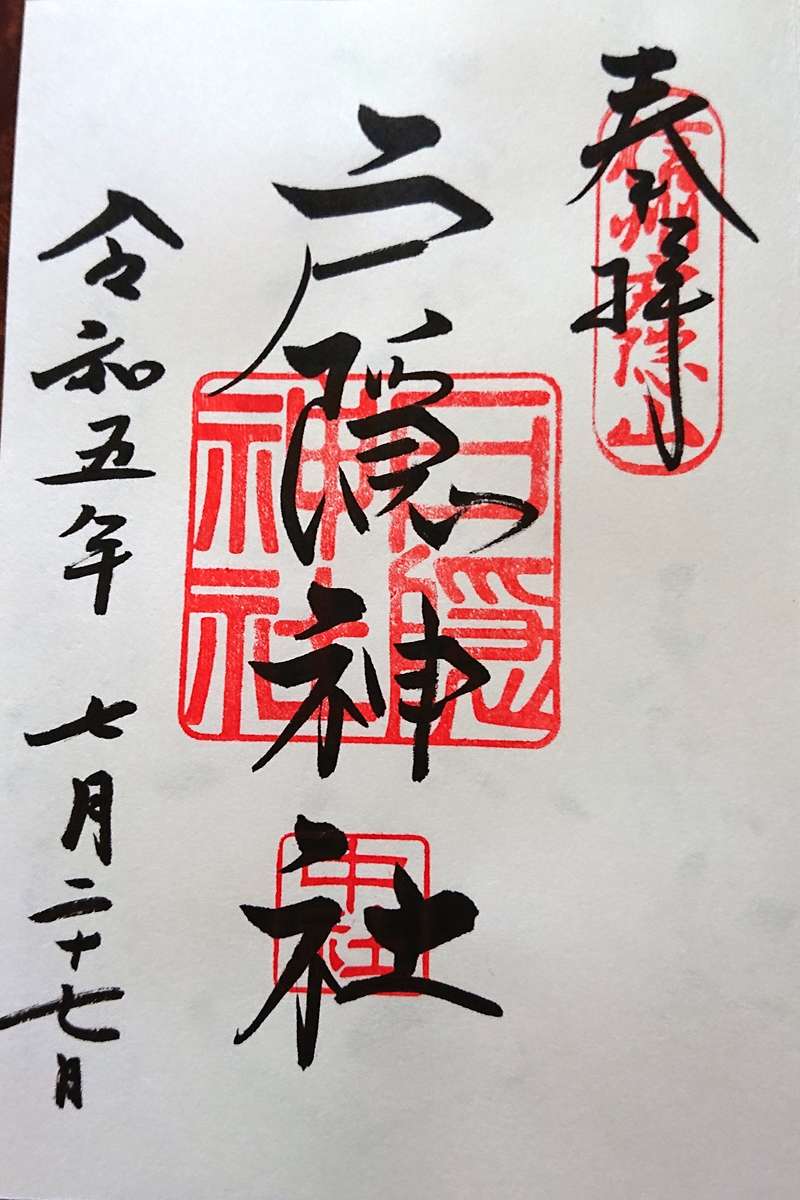 奉拝
信州戸隠山
戸隠神社
戸隠
神社
中社
令和五年 七月二十七日